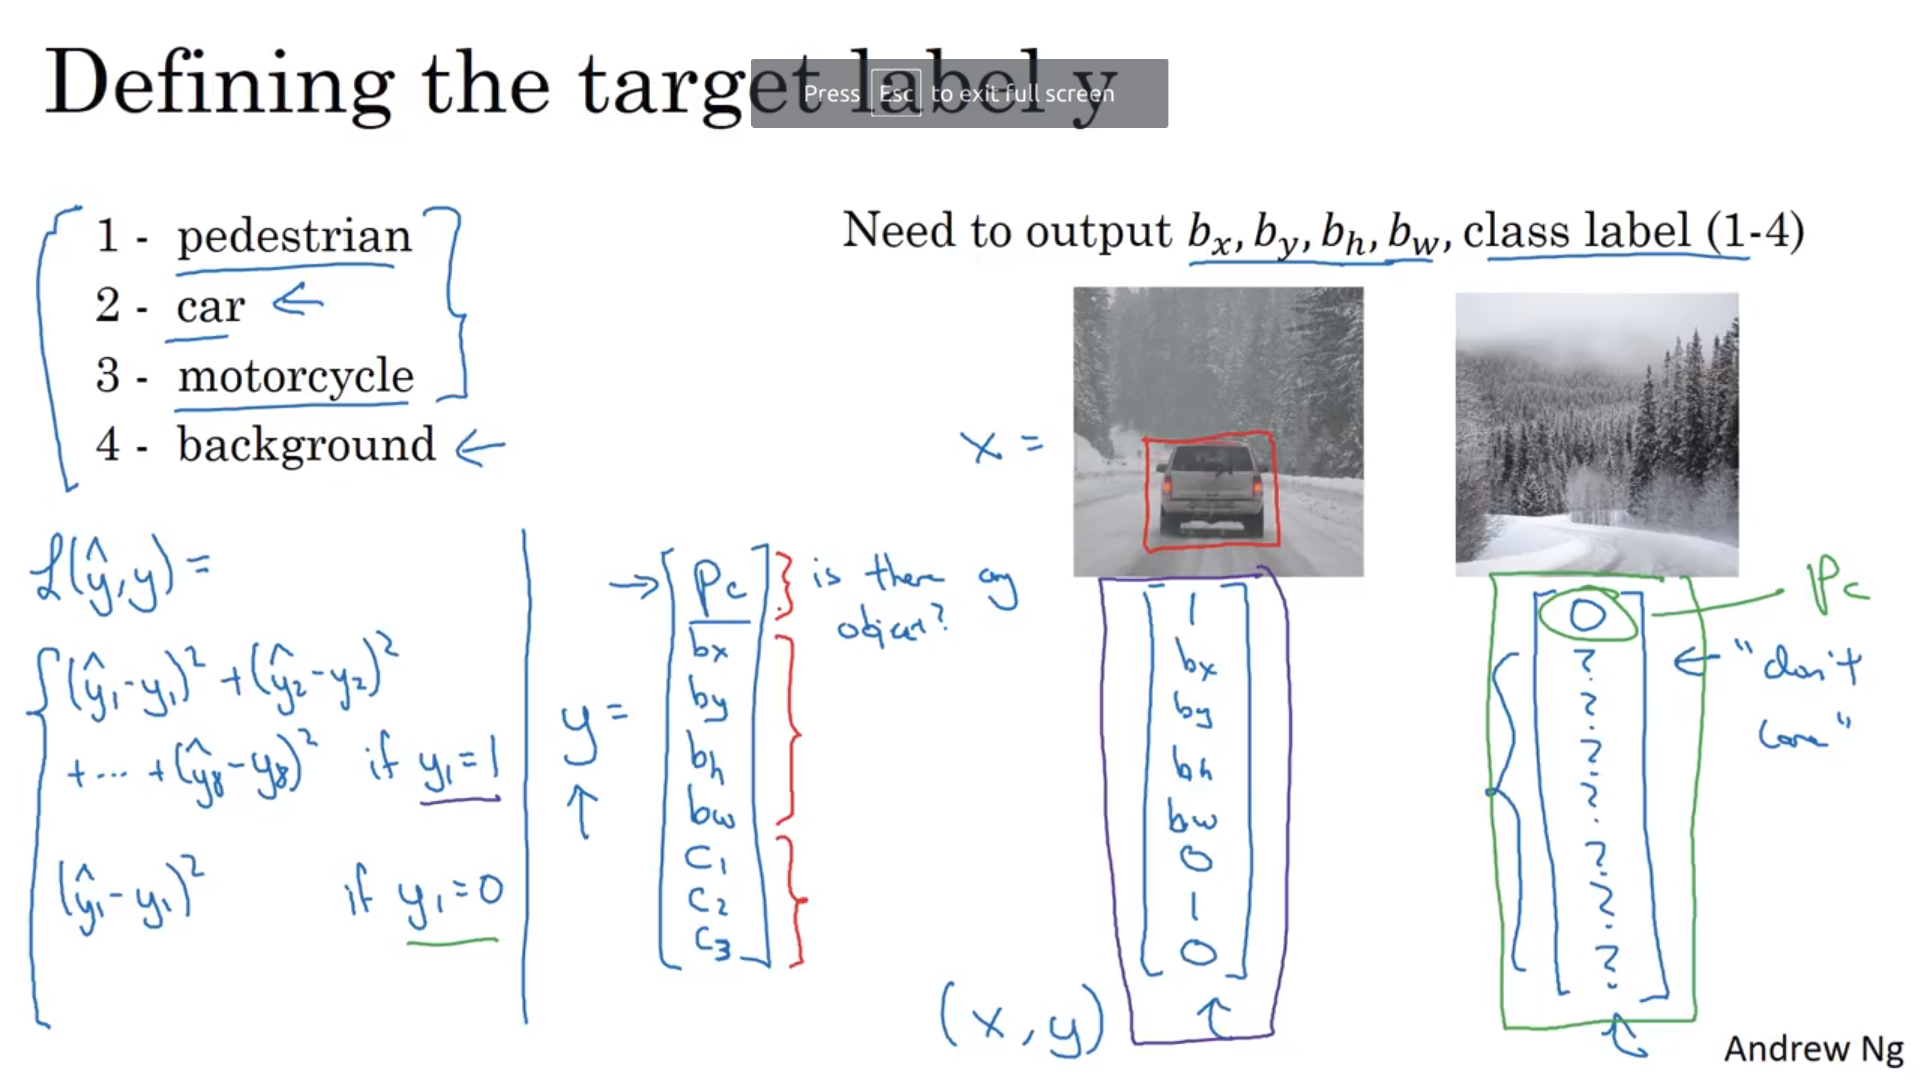 Defining the target label y
Press Esc to exit full screen
1 - pedestrian
2 - car ←
3 - motorcycle
4 - background ←
Need to output bₓ, b_y, b_h, b_w, class label (1-4)
x =
ℒ(ŷ, y) =
(ŷ₁ - y₁)² + (ŷ₂ - y₂)²
+ ... + (ŷ₈ - y₈)² if y₁ = 1
(ŷ₁ - y₁)² if y₁ = 0
y =
→ Pc
bx
by
bh
bw
C₁
C₂
C₃
is there any
object?
1
bx
by
bh
bw
0
1
0
(x, y)
0
?
?
?
?
?
?
?
Pc
← "don't
care"
Andrew Ng